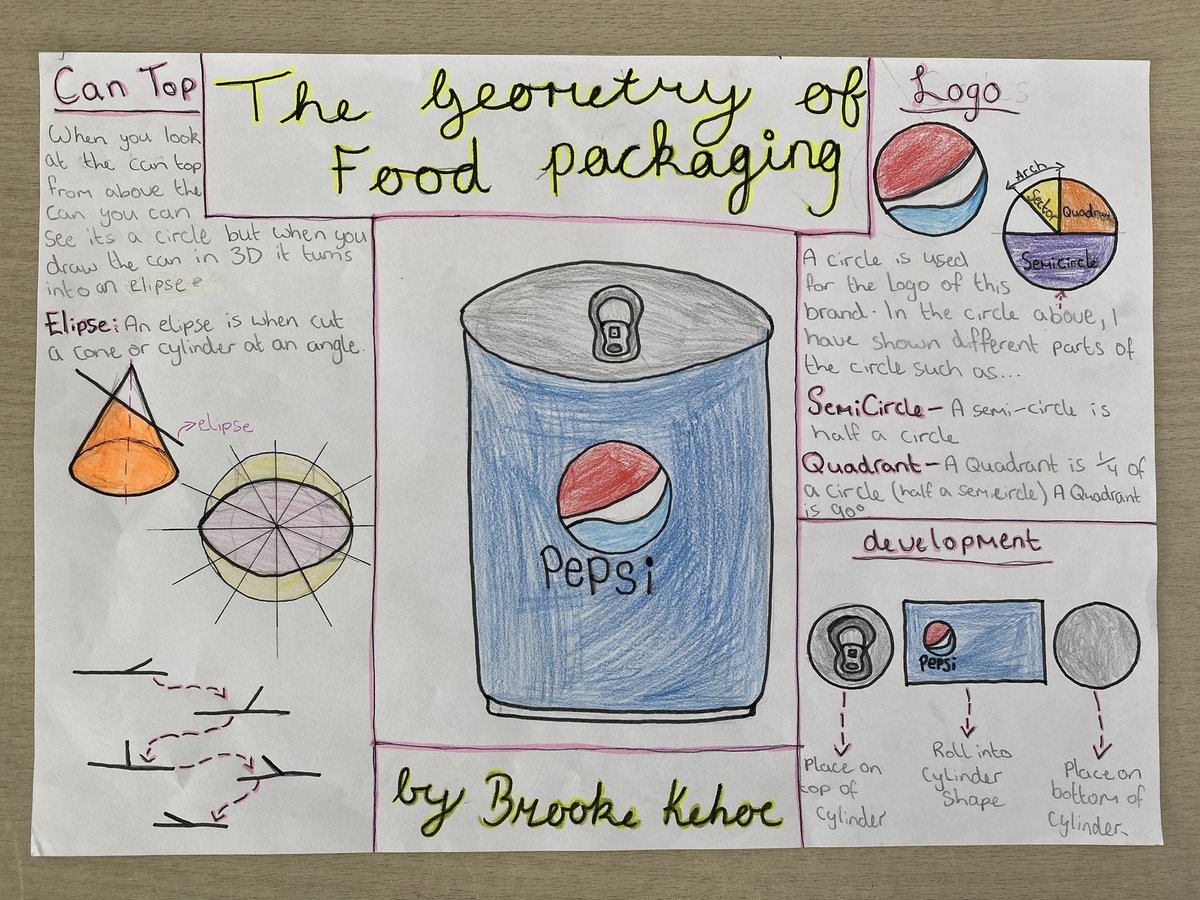 Can Top
The Geometry of
Food packaging
When you look
at the can top
from above the
can you can
see its a circle but when you
draw the can in 3D it turns
into an elipse
Elipse: An elipse is when cut
a cone or cylinder at an angle.
elipse
Pepsi
by Brooke Kehoe
Logo
Arch
Sector
Quadrant
Semicircle
A circle is used
for the logo of this
brand. In the circle above, I
have shown different parts of
the circle such as...
SemiCircle - A semi-circle is
half a circle
Quadrant - A Quadrant is 1/4 of
a circle (half a semicircle) A Quadrant
is 90°
development
Pepsi
Place on
top of
Cylinder
Roll into
Cylinder
Shape
Place on
bottom of
Cylinder.